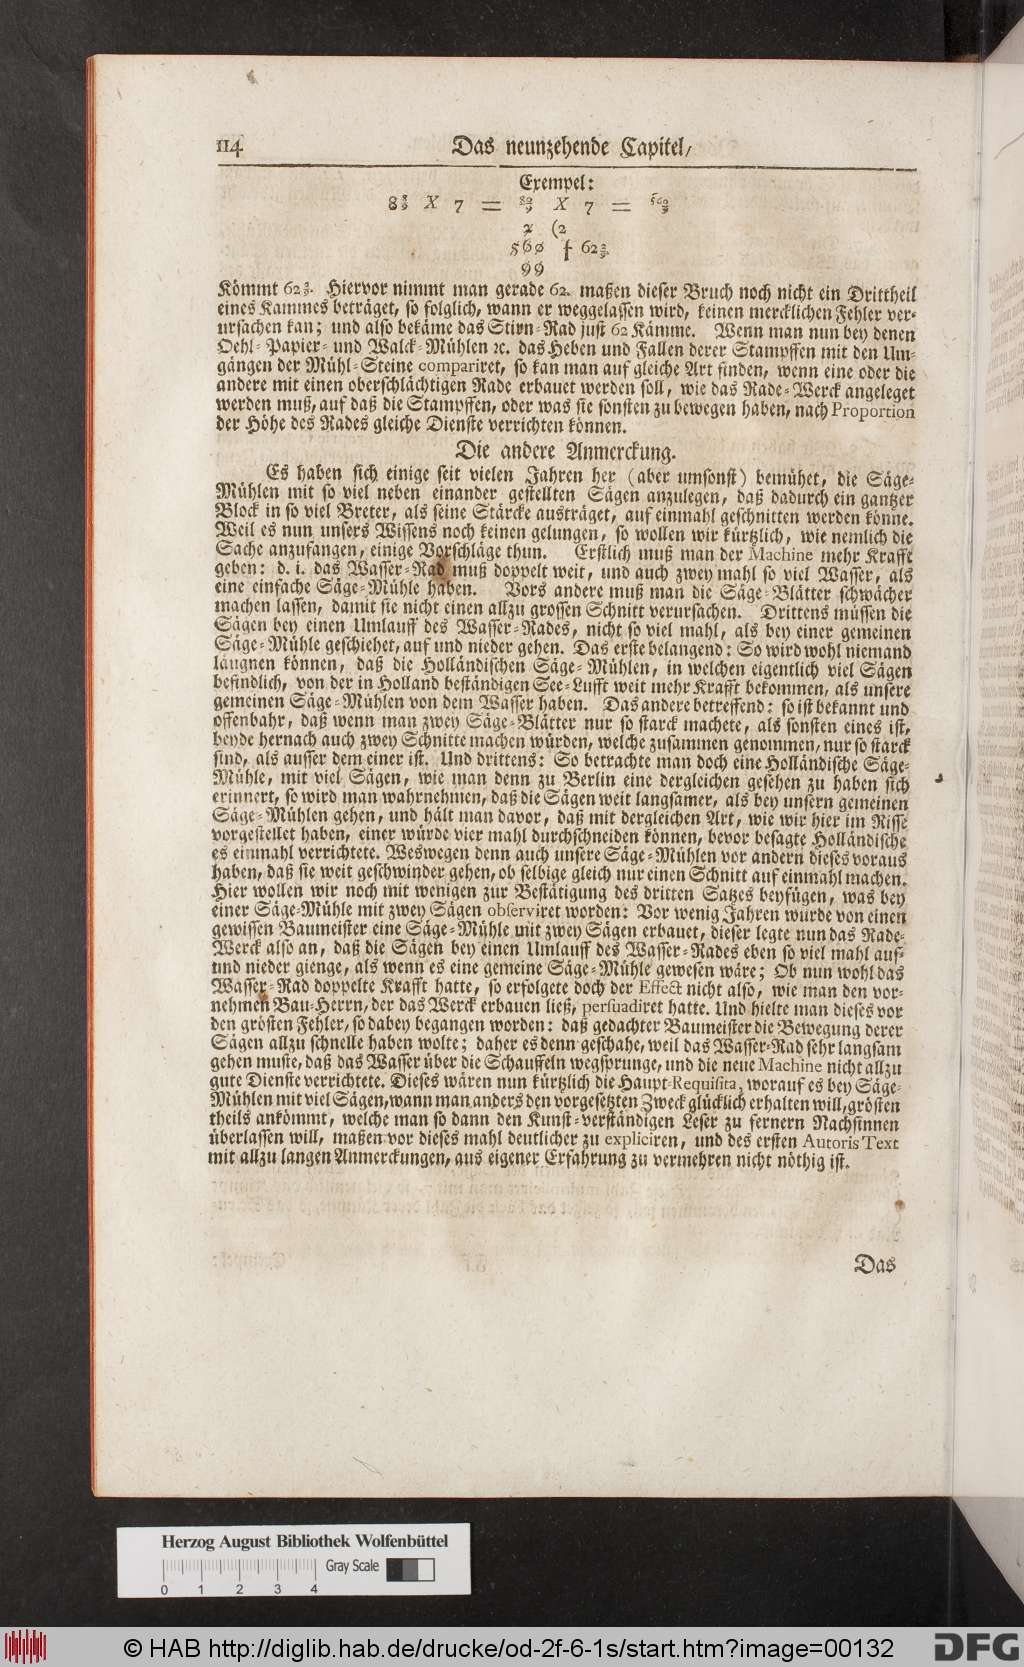 114 Das neunzehende Capitel,
Exempel:
8 8/9 X 7 = 80/9 X 7 = 560/9
2 (2
560 ∫ 62 2/9.
99
Kömmt 62 2/9. Hiervor nimmt man gerade 62. maßen dieser Bruch noch nicht ein Drittheil
eines Kammes beträget, so folglich, wann er weggelassen wird, keinen mercklichen Fehler ver-
ursachen kan; und also bekäme das Stirn-Rad just 62 Kämme. Wenn man nun bey denen
Oehl- Papier- und Walck-Mühlen ꝛc. das Heben und Fallen derer Stampffen mit den Um-
gängen der Mühl-Steine compariret, so kan man auf gleiche Art finden, wenn eine oder die
andere mit einen oberschlächtigen Rade erbauet werden soll, wie das Rade-Werck angeleget
werden muß, auf daß die Stampffen, oder was sie sonsten zu bewegen haben, nach Proportion
der Höhe des Rades gleiche Dienste verrichten können.
Die andere Anmerckung.
Es haben sich einige seit vielen Jahren her (aber umsonst) bemühet, die Säge-
Mühlen mit so viel neben einander gestellten Sägen anzulegen, daß dadurch ein gantzer
Block in so viel Breter, als seine Stärcke austräget, auf einmahl geschnitten werden könne.
Weil es nun unsers Wissens noch keinen gelungen, so wollen wir kürtzlich, wie nemlich die
Sache anzufangen, einige Vorschläge thun. Erstlich muß man der Machine mehr Krafft
geben: d. i. das Wasser-Rad muß doppelt weit, und auch zwey mahl so viel Wasser, als
eine einfache Säge-Mühle haben. Vors andere muß man die Säge-Blätter schwächer
machen lassen, damit sie nicht einen allzu grossen Schnitt verursachen. Drittens müssen die
Sägen bey einen Umlauff des Wasser-Rades, nicht so viel mahl, als bey einer gemeinen
Säge-Mühle geschiehet, auf und nieder gehen. Das erste belangend: So wird wohl niemand
läugnen können, daß die Holländischen Säge-Mühlen, in welchen eigentlich viel Sägen
befindlich, von der in Holland beständigen See-Lufft weit mehr Krafft bekommen, als unsere
gemeinen Säge-Mühlen von dem Wasser haben. Das andere betreffend: so ist bekannt und
offenbahr, daß wenn man zwey Säge-Blätter nur so starck machete, als sonsten eines ist,
beyde hernach auch zwey Schnitte machen würden, welche zusammen genommen, nur so starck
sind, als ausser dem einer ist. Und drittens: So betrachte man doch eine Holländische Säge-
Mühle, mit viel Sägen, wie man denn zu Berlin eine dergleichen gesehen zu haben sich
erinnert, so wird man wahrnehmen, daß die Sägen weit langsamer, als bey unsern gemeinen
Säge-Mühlen gehen, und hält man davor, daß mit dergleichen Art, wie wir hier im Risse
vorgestellet haben, einer würde vier mahl durchschneiden können, bevor besagte Holländische
es einmahl verrichtete. Weswegen denn auch unsere Säge-Mühlen vor andern dieses voraus
haben, daß sie weit geschwinder gehen, ob selbige gleich nur einen Schnitt auf einmahl machen.
Hier wollen wir noch mit wenigen zur Bestätigung des dritten Satzes beyfügen, was bey
einer Säge-Mühle mit zwey Sägen observiret worden: Vor wenig Jahren wurde von einen
gewissen Baumeister eine Säge-Mühle mit zwey Sägen erbauet, dieser legte nun das Rade-
Werck also an, daß die Sägen bey einen Umlauff des Wasser-Rades eben so viel mahl auf-
und nieder gienge, als wenn es eine gemeine Säge-Mühle gewesen wäre; Ob nun wohl das
Wasser-Rad doppelte Krafft hatte, so erfolgete doch der Effect nicht also, wie man den vor-
nehmen Bau-Herrn, der das Werck erbauen ließ, persuadiret hatte. Und hielte man dieses vor
den grösten Fehler, so dabey begangen worden: daß gedachter Baumeister die Bewegung derer
Sägen allzu schnelle haben wolte; daher es denn geschahe, weil das Wasser-Rad sehr langsam
gehen muste, daß das Wasser über die Schauffeln wegsprunge, und die neue Machine nicht allzu
gute Dienste verrichtete. Dieses wären nun kürtzlich die Haupt-Requisita, worauf es bey Säge-
Mühlen mit viel Sägen, wann man anders den vorgesetzten Zweck glücklich erhalten will, grösten
theils ankömmt, welche man so dann den Kunst-verständigen Leser zu fernern Nachsinnen
überlassen will, maßen vor dieses mahl deutlicher zu expliciren, und des ersten Autoris Text
mit allzu langen Anmerckungen, aus eigener Erfahrung zu vermehren nicht nöthig ist.
Das
Herzog August Bibliothek Wolfenbüttel
Gray Scale
0 1 2 3 4
© HAB http://diglib.hab.de/drucke/od-2f-6-1s/start.htm?image=00132
DFG